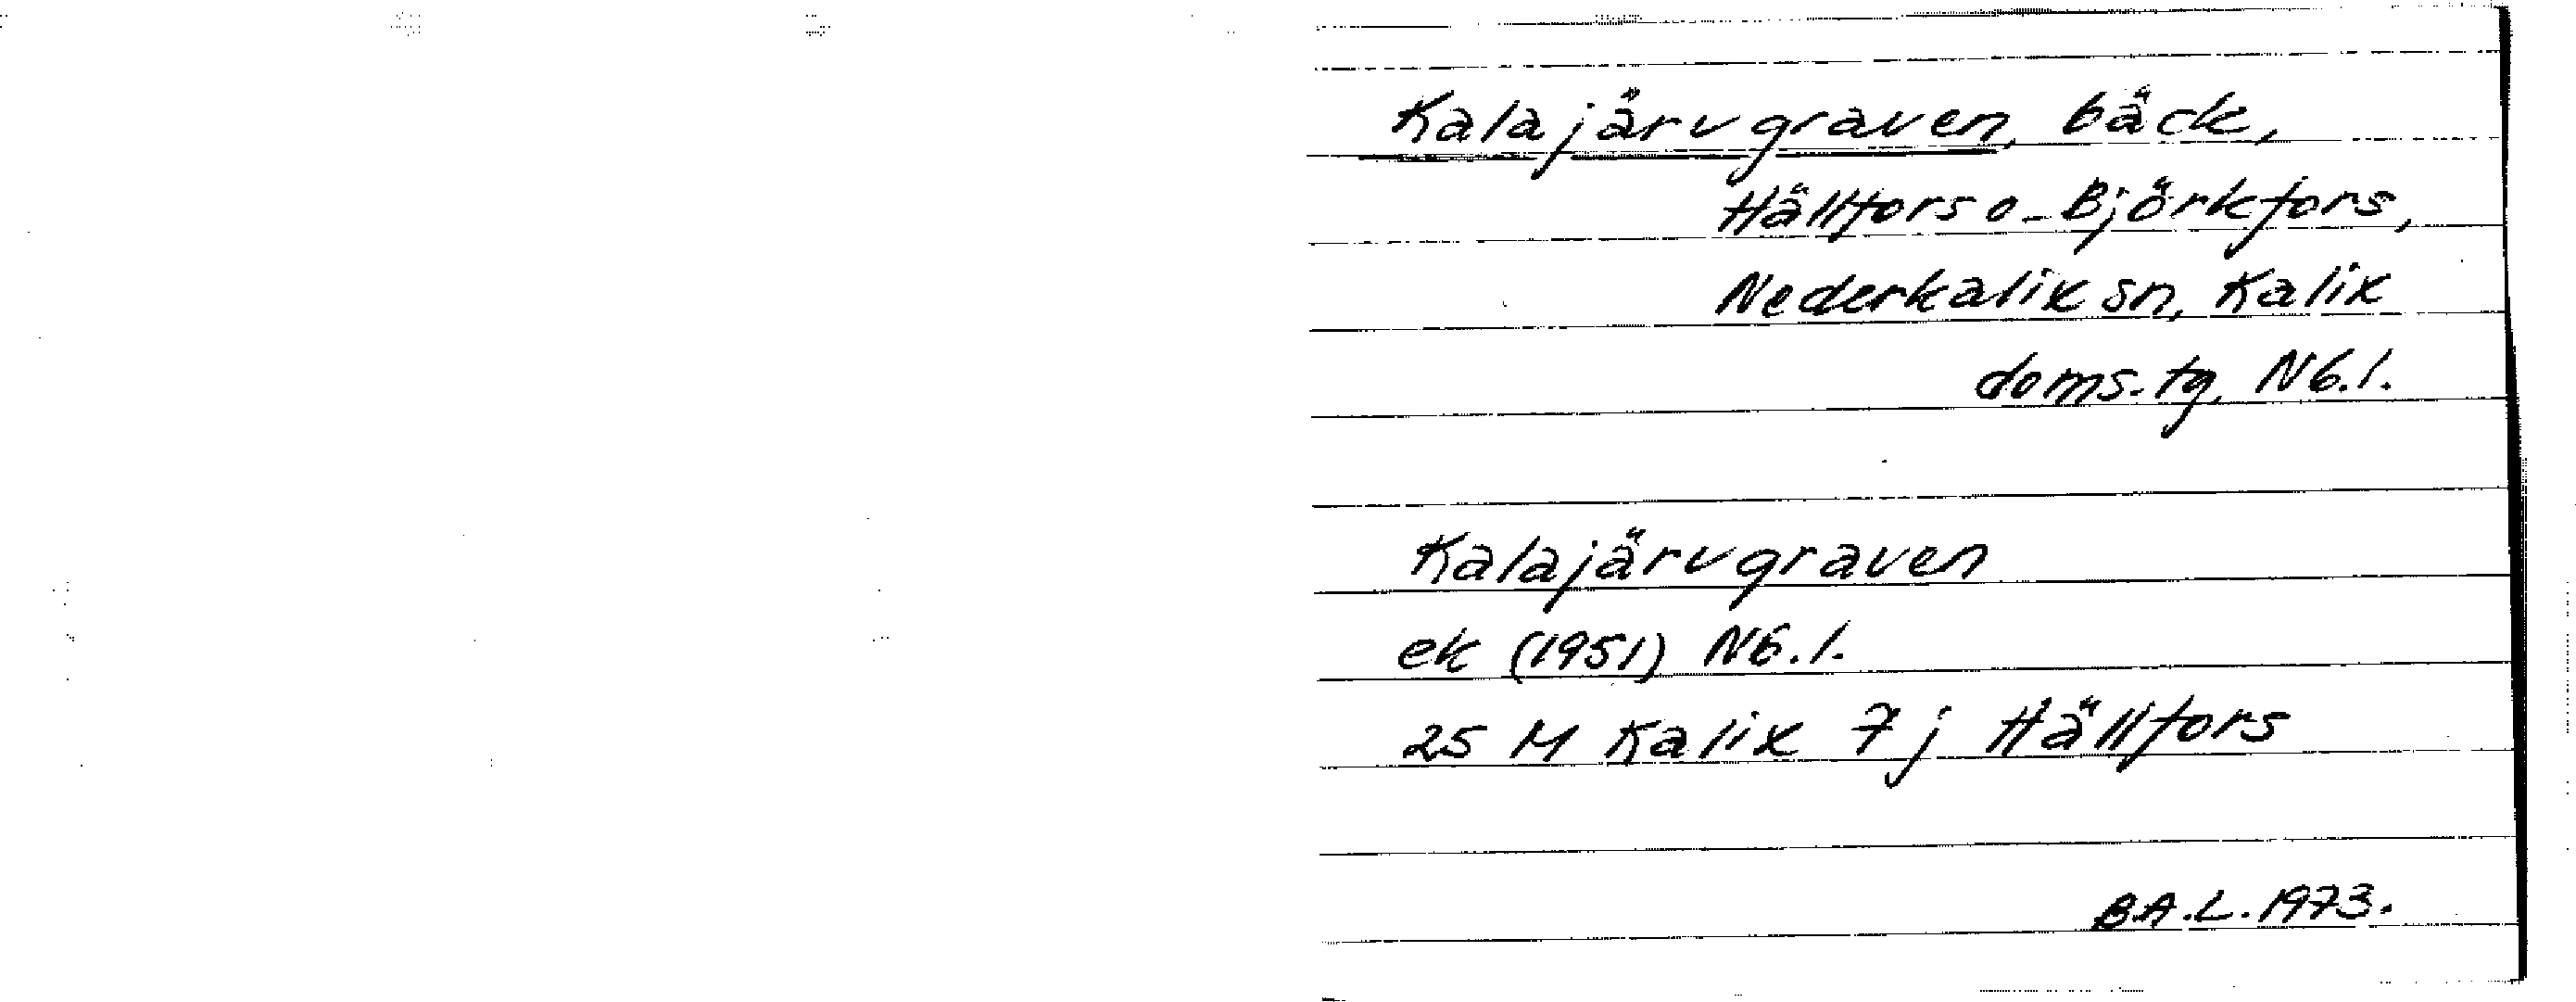 Kalajärvgraven, bäck,
Hällfors o. Björkfors,
Nederkalix sn, Kalix
doms. tg, Nb. l.
Kalajärvgraven
ek (1951) Nb. l.
25 M Kalix 7j Hällfors
B.A.L. 1973.